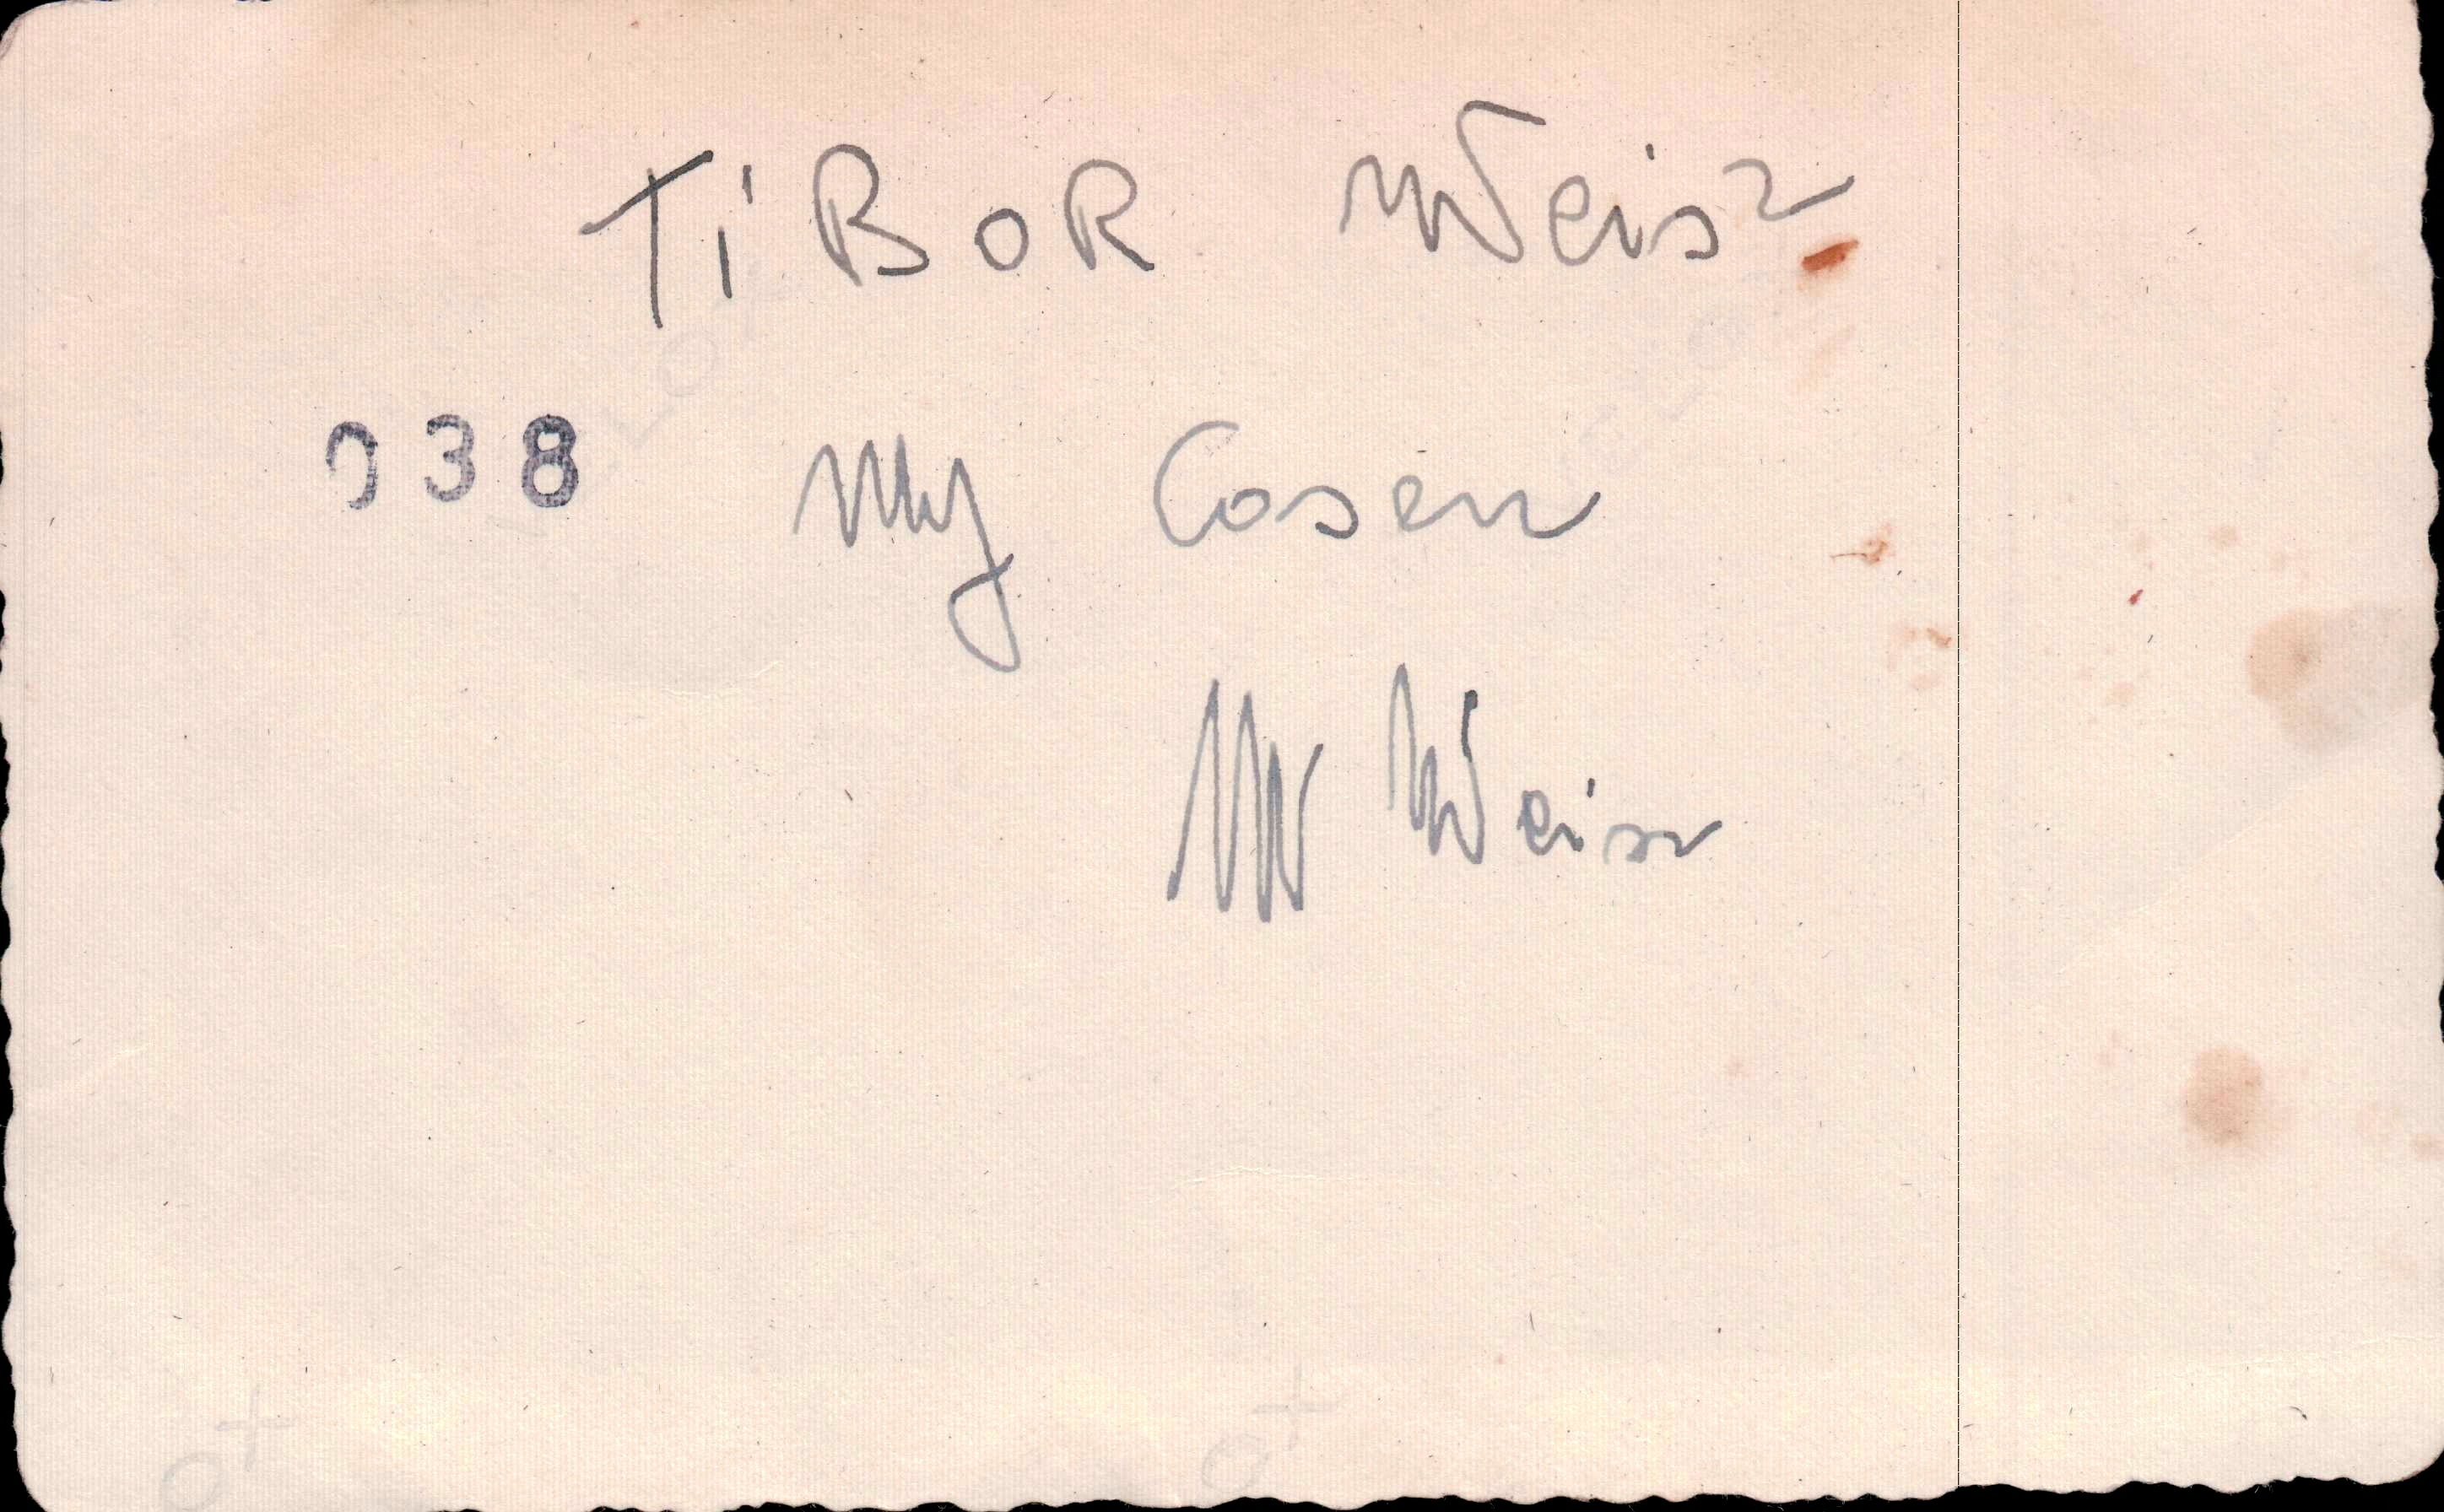 TiBOR Weisz
038 My Cosen
M Weisz